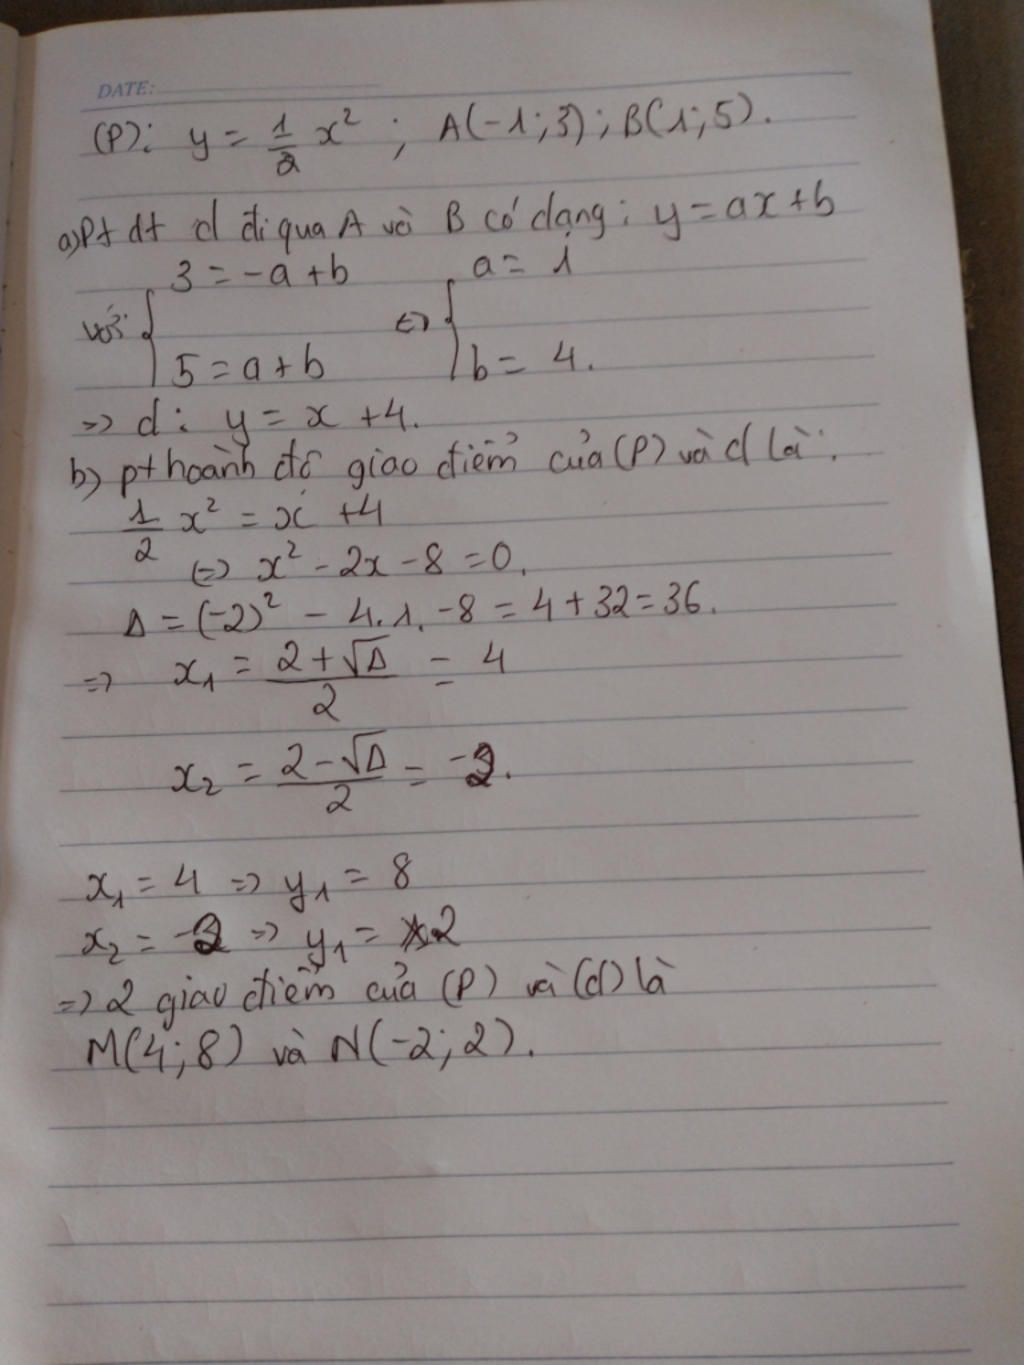 DATE:
(P): y = 1/2 x² ; A(-1;3); B(1;5).
a) Pt đt d đi qua A và B có dạng: y = ax + b
với { 3 = -a + b ; 5 = a + b <=> { a = 1 ; b = 4.
=> d: y = x + 4.
b) pt hoành độ giao điểm của (P) và d là:
1/2 x² = x + 4
<=> x² - 2x - 8 = 0.
Δ = (-2)² - 4.1.-8 = 4 + 32 = 36.
=> x₁ = (2 + √Δ)/2 = 4
x₂ = (2 - √Δ)/2 = -2.
x₁ = 4 => y₁ = 8
x₂ = -2 => y₁ = 2
=> 2 giao điểm của (P) và (d) là
M(4;8) và N(-2;2).